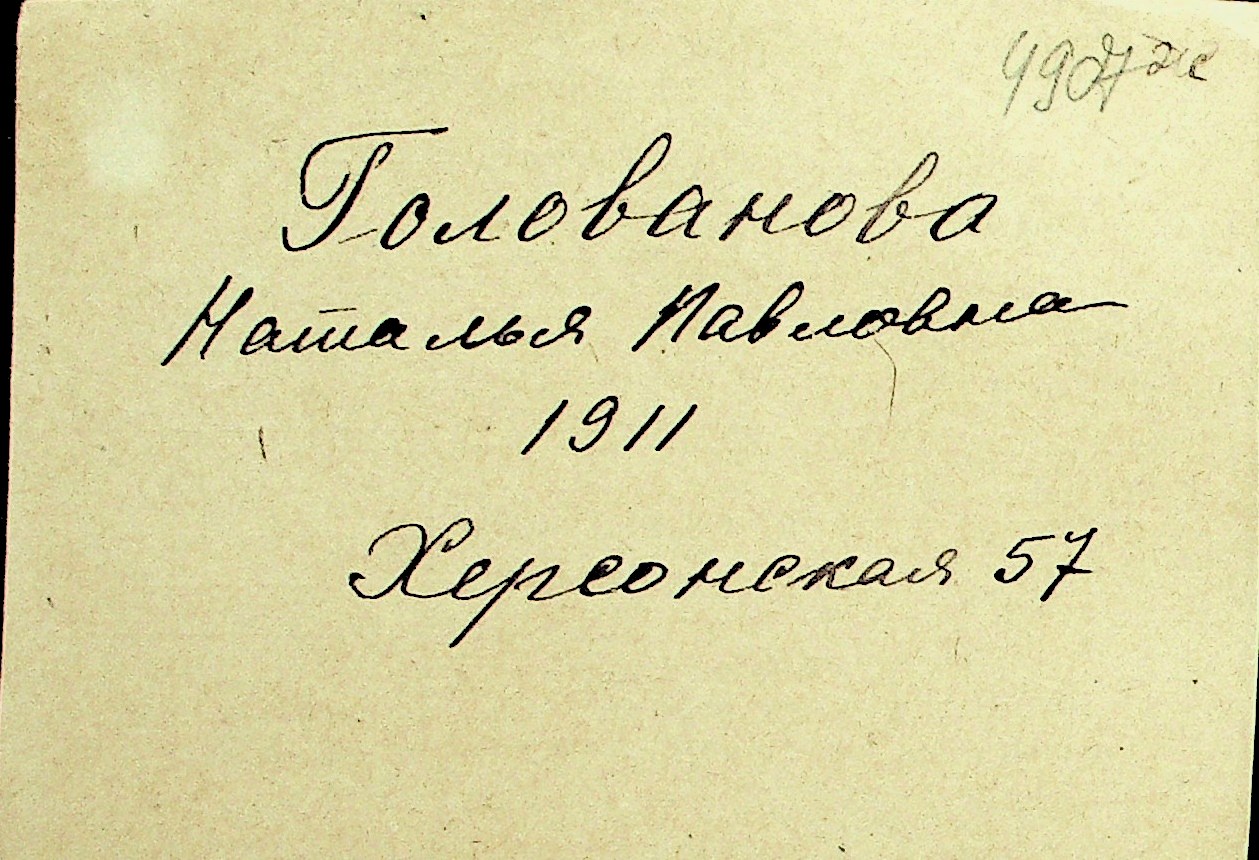 Голованова
Наталья Павловна
1911
Херсонская 57